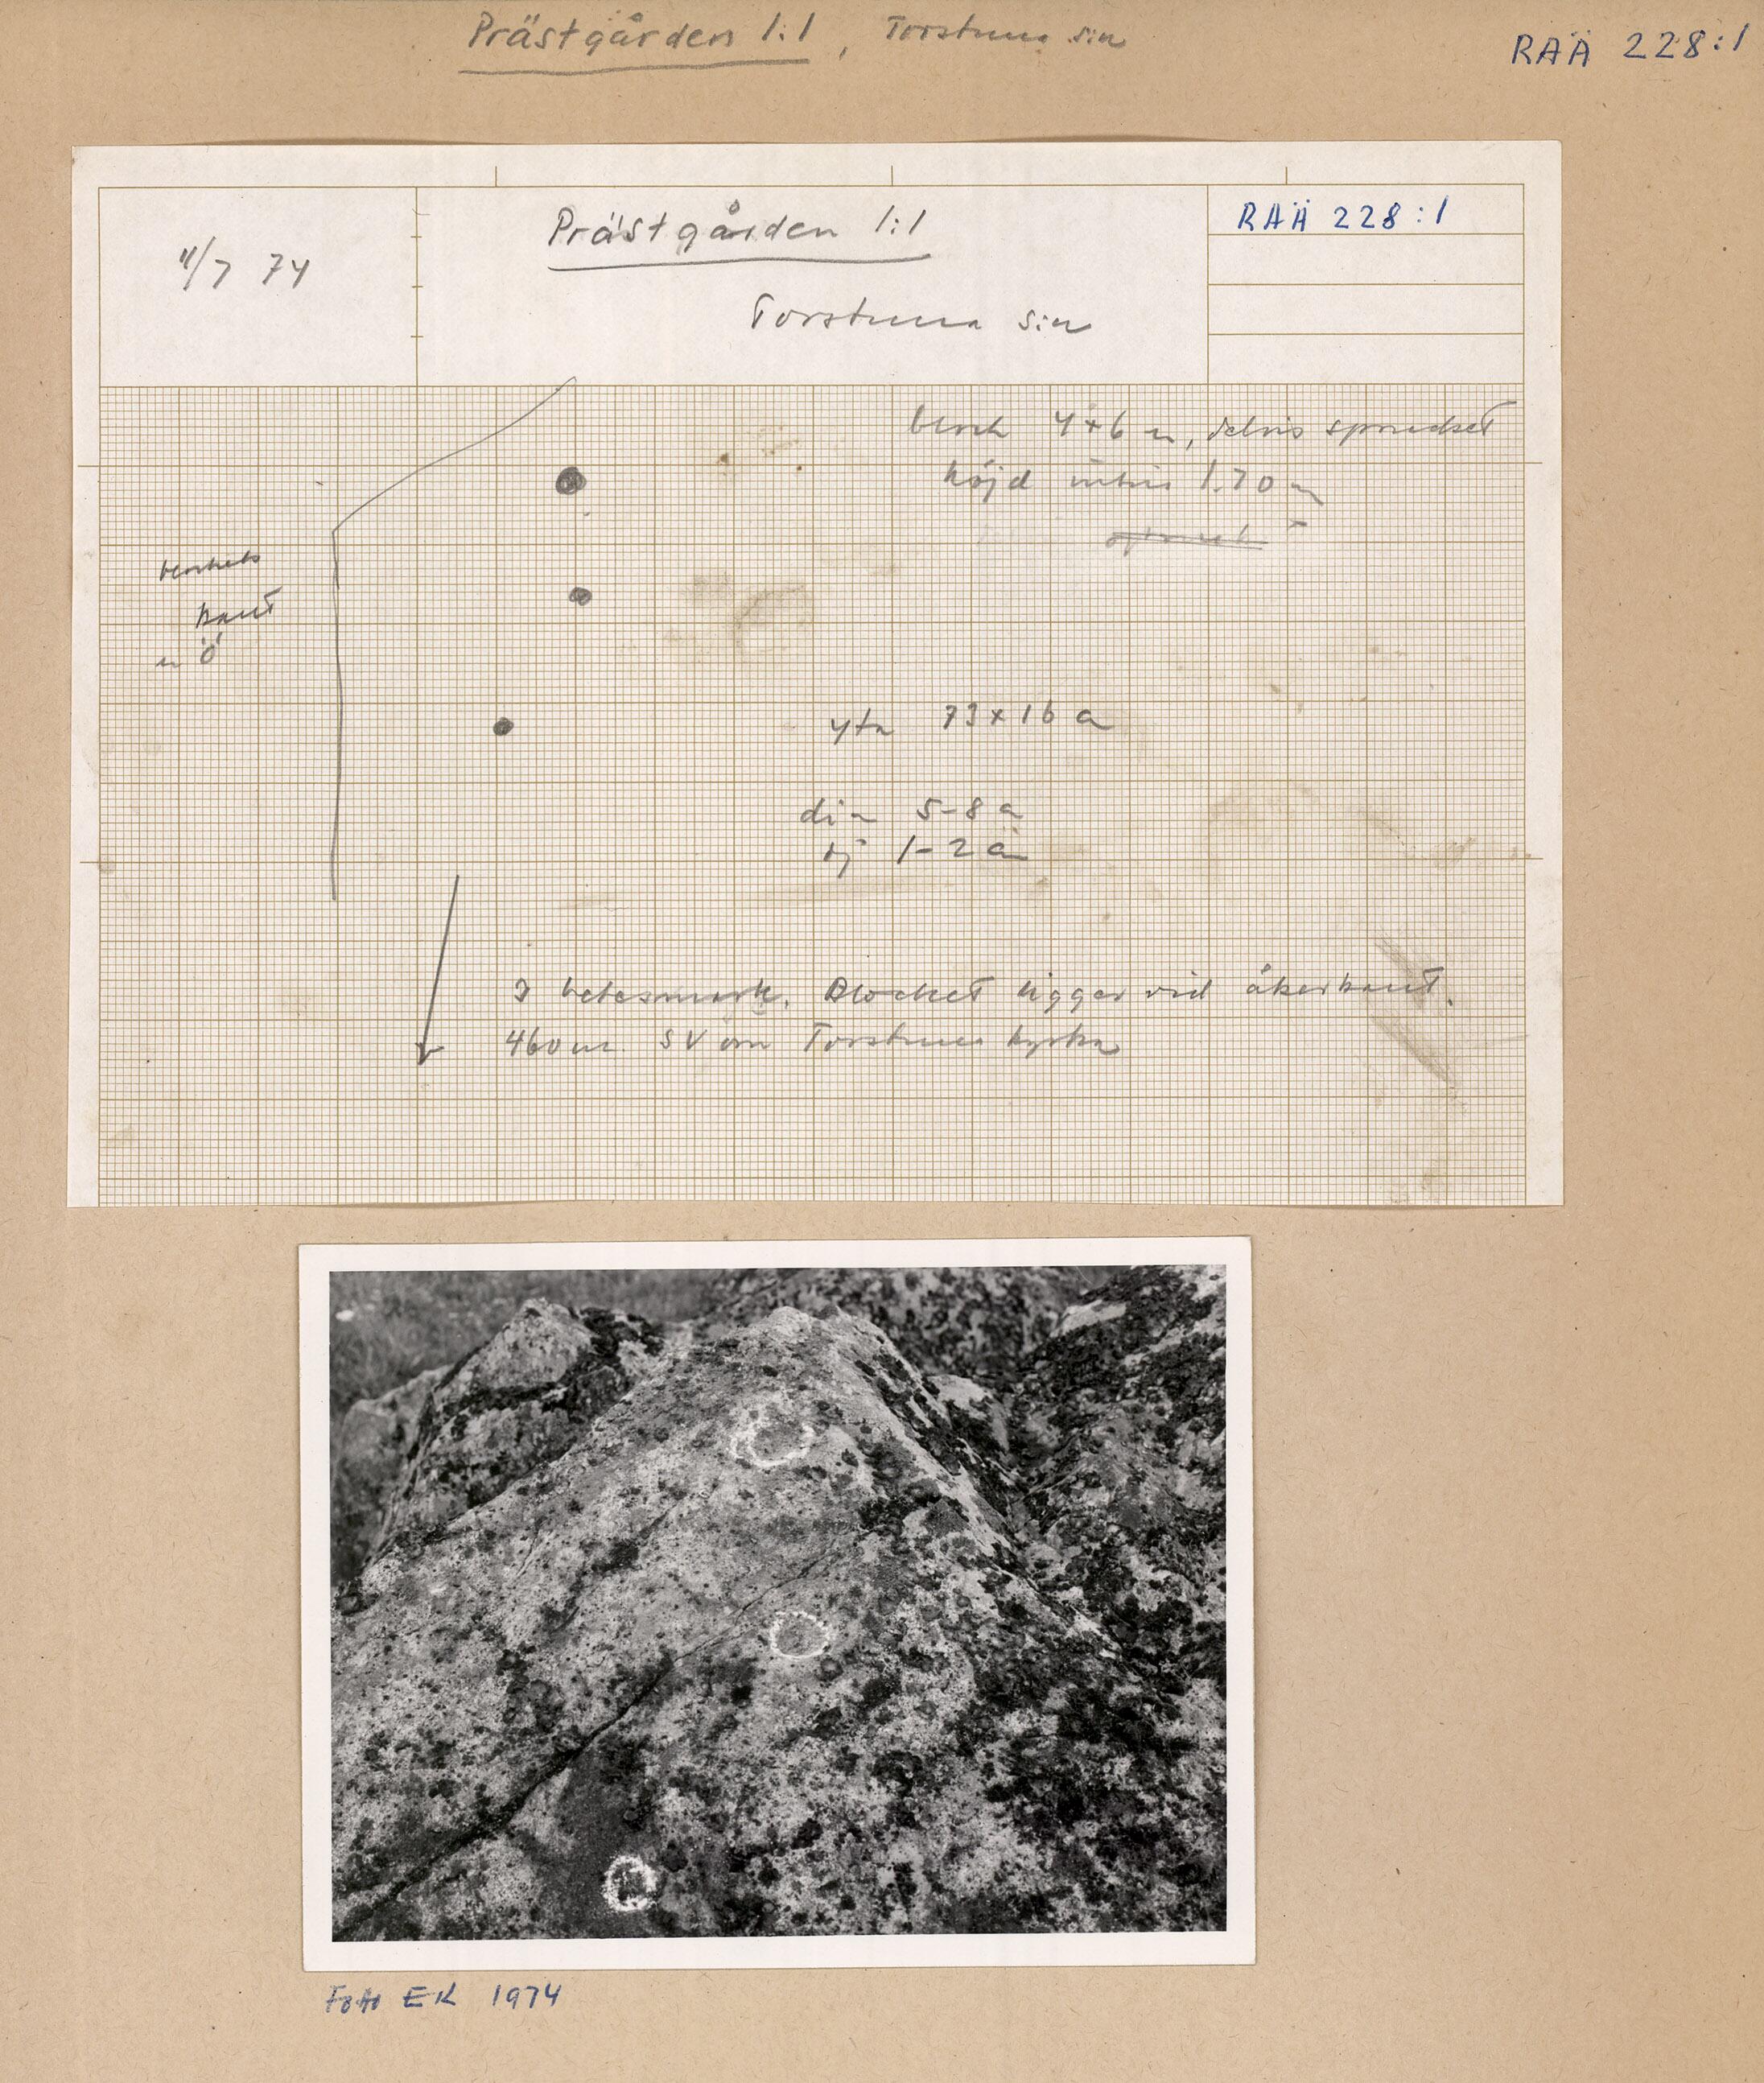 Prästgården 1:1, Torstuna sn
RAÄ 228:1
11/7 74
Prästgården 1:1
Torstuna sn
RAÄ 228:1
block 4x6 m, delvis sprucket
höjd intill 1.70 m
blockets
kant
n ö
yta 73x16 c
dim 5-8 c
dj 1-2 c
I betesmark. Blocket ligger vid åkerkant.
460 m SV om Torstuna kyrka
Foto EK 1974